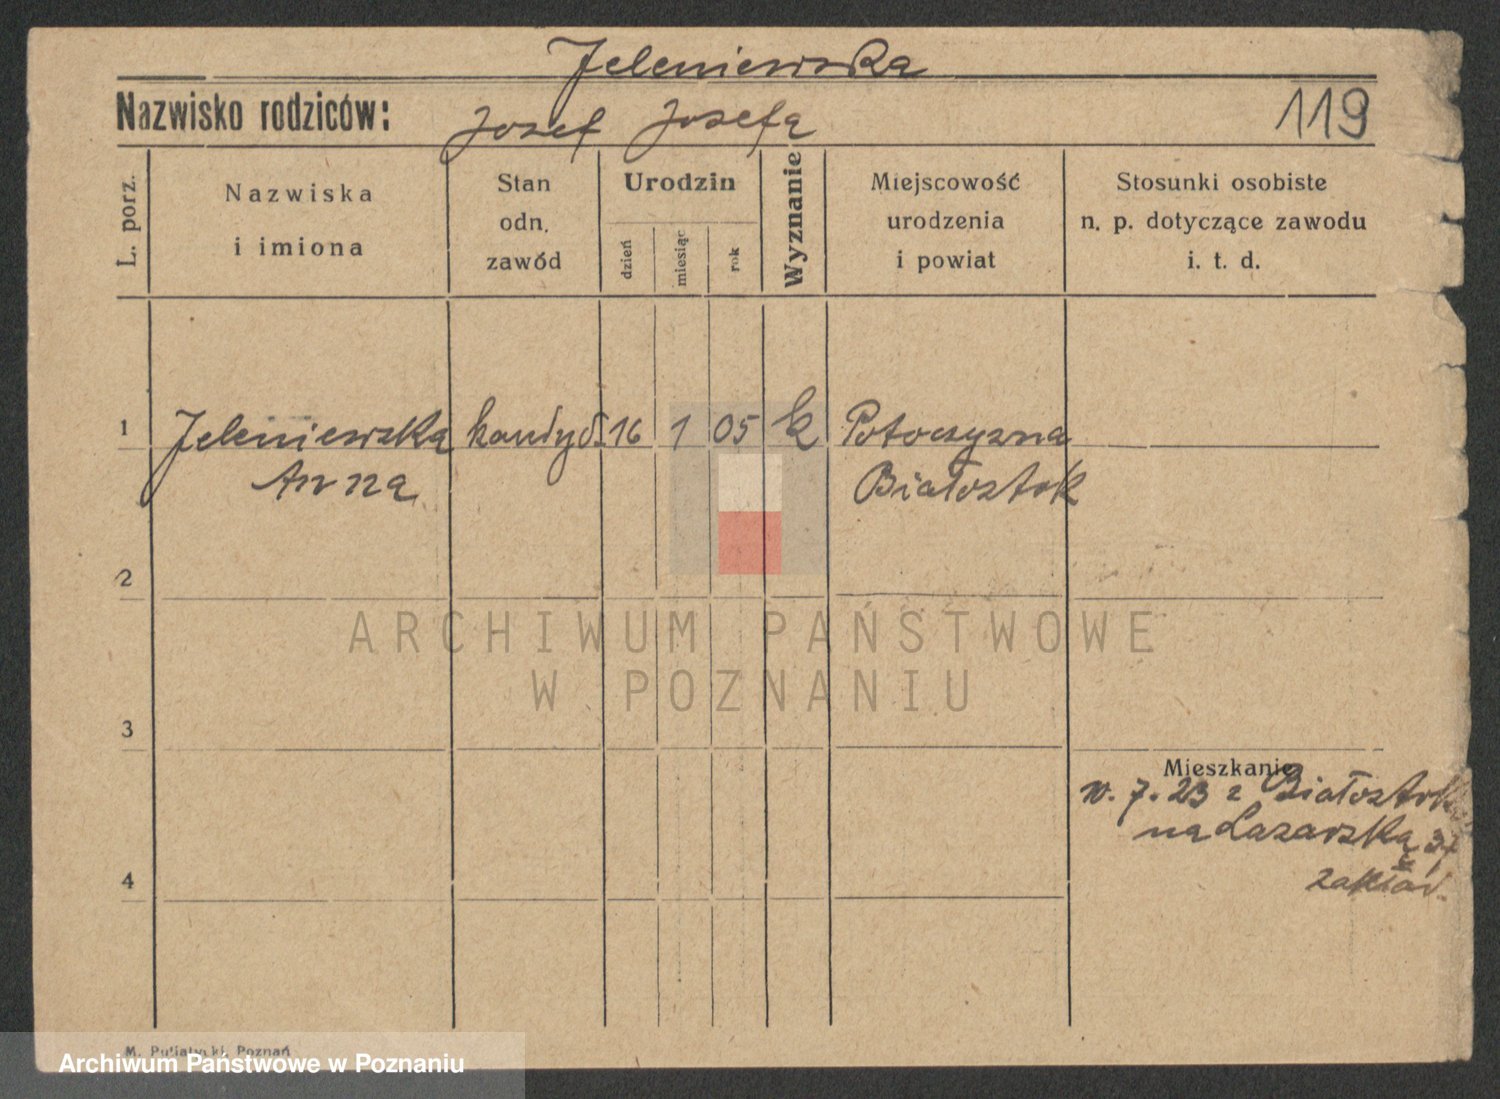 Jeleniewska
Nazwisko rodziców:
Josef Josefa
119
L. porz.
Nazwiska
i imiona
Stan
odn.
zawód
Urodzin
dzień
miesiąc
rok
Wyznanie
Miejscowość
urodzenia
i powiat
Stosunki osobiste
n. p. dotyczące zawodu
i. t. d.
1 Jeleniewska kandyd. 16 1 05 k Potoczyzna
Anna Białostok
2
3
4
Mieszkanie
10. 7. 23 z Białostok
na Lazarską
zakład.
ARCHIWUM PAŃSTWOWE
W POZNANIU
Poznań
Archiwum Państwowe w Poznaniu